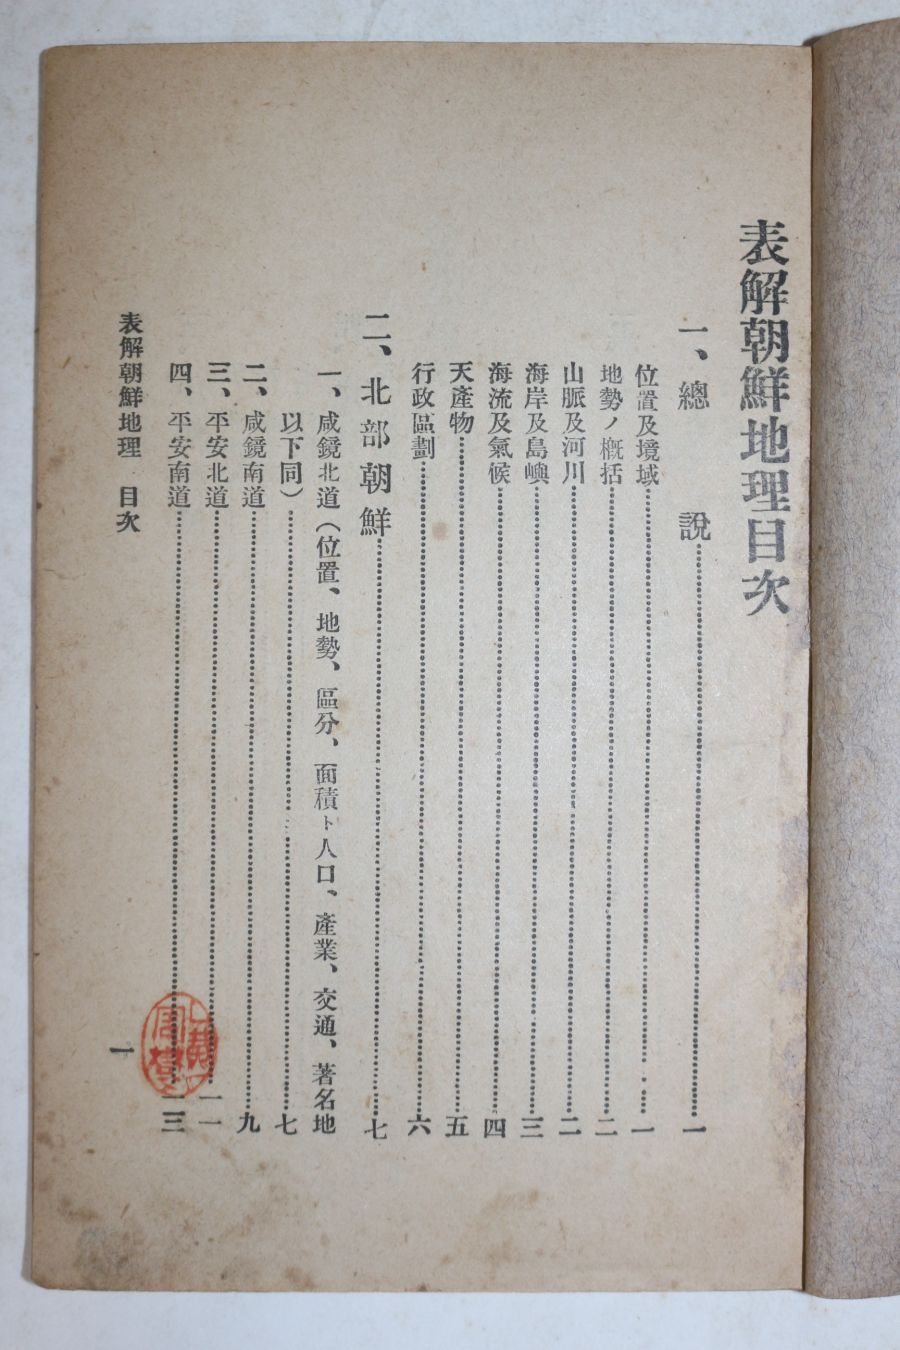 表解朝鮮地理目次
一、總　說………一
位置及境域………一
地勢ノ槪括………二
山脈及河川………二
海岸及島嶼………三
海流及氣候………四
天產物………五
行政區劃………六
二、北部朝鮮………七
一、咸鏡北道（位置、地勢、區分、面積ト人口、產業、交通、著名地
以下同）………七
二、咸鏡南道………九
三、平安北道………一一
四、平安南道………一三
表解朝鮮地理　目次
一